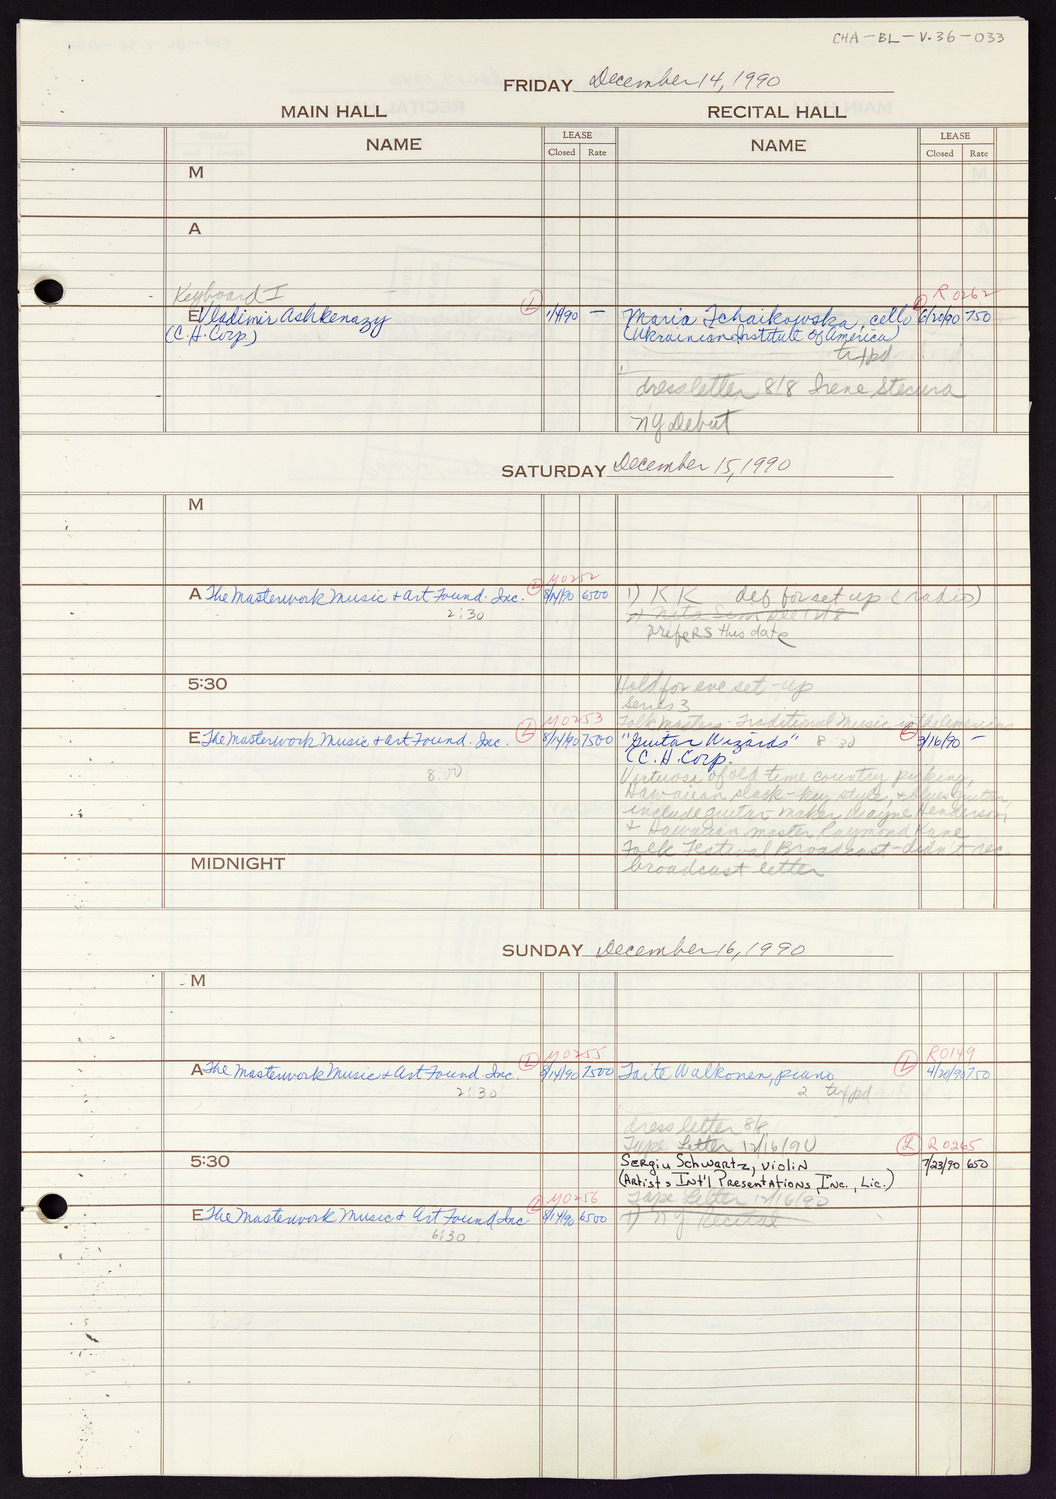 CHA-BL-V.36-033
FRIDAY December 14, 1990
MAIN HALL RECITAL HALL
NAME LEASE Closed Rate NAME LEASE Closed Rate
M
A
Keyboard I
R0262
E Vladimir Ashkenazy (L) 1/1/90 — Maria Tchaikowska, cello (L) 6/20/90 750
(C.H. Corp.) (Ukrainian Institute of America)
tx/pd
dress letter 8/8 Irene Stecura
NY Debut
SATURDAY December 15, 1990
M
M0252
A The Masterwork Music & Art Found. Inc. (L) 8/14/90 6500 1) KK def for set up (radio)
2:30
prefers this date
5:30 Hold for eve set-up
Series 3
M0253 Folk Masters - Traditional Music in the Americas
E The Masterwork Music & Art Found. Inc. (L) 8/14/90 7500 "Guitar Wizards" 8:30 3/16/90 —
(C.H. Corp.
8:00 Virtuosi of old time country picking,
Hawaiian slack-key style, & blues guitar,
include guitar maker Wayne Henderson,
& Hawaiian master Raymond Kane
Folk Festival Broadcast - didn't rec
MIDNIGHT broadcast letter
SUNDAY December 16, 1990
M
M0255 R0149
A The Masterwork Music & Art Found Inc. (L) 8/14/90 7500 Taite Walkonen, piano (L) 4/20/90 750
2:30 2 tx/pd
dress letter 8/8
Tape Letter 12/16/90 (L) R0265
5:30 Sergiu Schwartz, violin 7/23/90 650
(Artists Int'l Presentations, Inc., Lic.)
M0256 Tape Letter 12/16/90
E The Masterwork Music & Art Found Inc (L) 8/14/90 6500 1) NY Recital
6:30